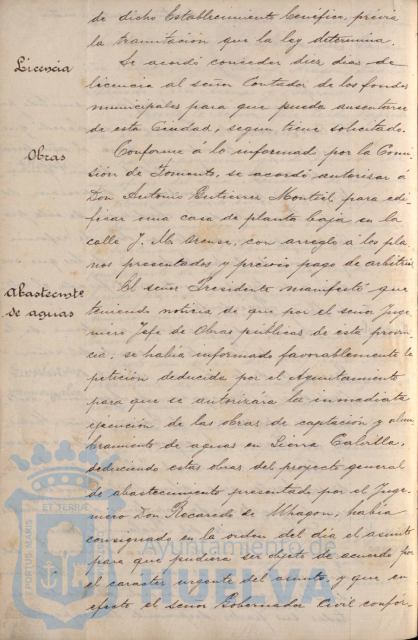 de dicho Establecimiento benéfico, previa
la tramitación que la ley determina.
Licencia
Se acordó conceder diez dias de
licencia al señor Contador de los fondos
municipales para que pueda ausentarse
de esta Ciudad, segun tiene solicitado.
Obras
Conforme á lo informado por la Comi-
sión de Fomento, se acordó autorizar á
Don Antonio Gutierrez Montiel para edi-
ficar una casa de planta baja en la
calle J. M. con arreglo á los pla-
nos presentados y prévio pago de arbitrios
Abastecimto
de aguas
El señor Presidente manifestó que
teniendo noticia de que por el señor Inge-
niero Jefe de Obras públicas de esta provin-
cia, se habia informado favorablemente la
petición deducida por el Ayuntamiento
para que se autorizára la inmediata
ejecución de las obras de captación y alum-
bramiento de aguas en Sierra
deduciendo estas obras del proyecto general
de abastecimiento presentado por el Inge-
niero Don Recaredo de Uhagon, habia
consignado en la orden del dia el asunto
para que pudiera ser objeto de acuerdo por
el caracter urgente del asunto, y que en
efecto el señor Gobernador Civil confor-
PORTUS MARIS ET TERRÆ
Ayuntamiento de
HUELVA